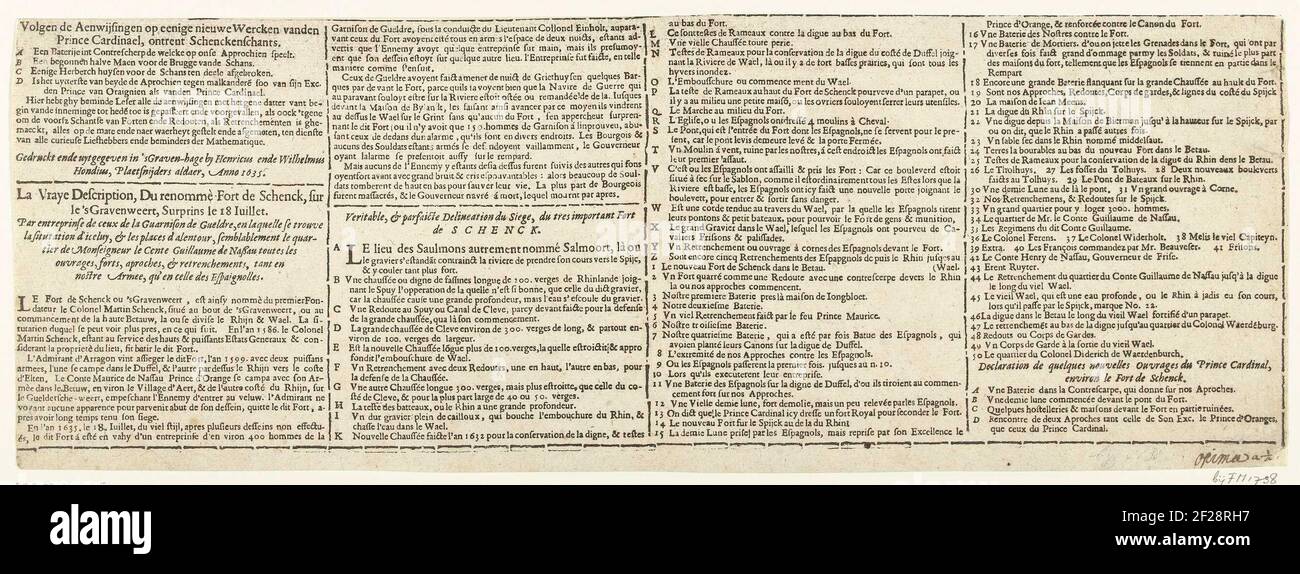 Volgen de Aenwijsingen op eenige nieuwe Wercken vanden
Prince Cardinael, ontrent Schenckenschants.
A Een Baterije int Contrescherp de welcke op onse Approchien speelt.
B Een begonnen halve Maen voor de Brugge vande Schans.
C Eenige Herberch huysen voor de Schans ten deele afgebroken.
D Is het uyterste van beyde de Aprochien tegen malkanderë soo van sijn Exc
den Prince van Oraignien als vanden Prince Cardinael.
Hier hebt ghy beminde Leser alle de aenwijsingen met het gene datter vant be-
gin vande inneminge tot heden toe is gepasseert ende voorgevallen, als oock 'tgene
om de voorsz Schants van Forten ende Redouten, als Retrenchementen is ghe-
maeckt, alles op de mate ende naer waerheyt gestelt ende afgemeten, ten dienste
van alle curieuse Liefhebbers ende beminders der Mathematique.
Gedruckt ende uytgegeven in 'sGraven-hage by Henricus ende Wilhelmus
Hondius, Plaetsnijders aldaer, Anno 1635.
La Vraye Description, Du renommé Fort de Schenck, sur
le 'sGravenweert, Surprins le 18 Iuillet.
Par entreprinse de ceux de la Guarnison de Gueldre, en laquelle se trouve
la situration d'iceluy, & les places d'alentour, semblablement le quar-
tier de Monseigneur le Conte Guillaume de Nassau toutes les
ouvrages, forts, aproches, & retrenchements, tant en
nostre Armee, qu'en celle des Espaignolles.
LE Fort de Schenck ou 'sGravenweert, est ainsy nommé du premier Fon-
dateur le Colonel Martin Schenck, situé au bout de 'sGravenweert, ou au
commancement de la haute Betauw, la ou se divise le Rhijn & Wael. La si-
turation duquel se peut voir plus pres, en ce qui suit. En l'an 1586. le Colonel
Martin Schenck, estant au service des hauts & puissants Estats Generaux & con-
siderant la proprieté du lieu, fit batir le dit Fort.
L'Admirant d'Arragon vint assieger le dit Fort, l'an 1599. avec deux puissants
armees, l'une se campe dans le Duffel, & l'autre par dessus le Rhijn vers le coste
d'Elten. Le Conte Maurice de Nassau Prince d'Orange se campa avec son Ar-
mée dans le Betuw, en viron le Village d'Aert, & de l'autre costé du Rhijn, sur
le Gueldersche-weert, empeschant l'Ennemy d'entrer au veluw. L'admirant ne
voyant aucune apparence pour parvenir abut de son dessein, quitte le dit Fort, a-
pres avoir long temps tenu son siege.
En l'an 1635, le 18. Iuillet, du viel stijl, apres plusieurs desseins non effectu-
és, le dit Fort à esté en vahy d'un entreprinse d'en viron 400 hommes de la
Garnison de Gueldre, sous la conduicte du Lieutenant Collonel Einholt, auparav-
vant ceux du Fort avoyent esté tous en arms; la deuxiesme nuict, estants ad-
vertis que l'Ennemy avoyt quelque entreprinse sur main, mais ils presumoy-
ent que son dessein estoyt sur quelque autre lieu. l'Entreprinse fut faicte, en telle
maniere comme s'ensuit.
Ceux de Gueldre avoyent faict amener de nuict de Griethuysen quelques Bar-
ques par devant le Fort, parce quils savoyent bien que la Navire de Guerre qui
au paravant souloyt estre sur la Riviere estoit ostée ou remandée de la. Iusques
devant la Maison de Bylank, les faisant ainsi avancer par ce moyen ils vindrent
au dessus le Wael sur le Grint sans qu'aucun du Fort, s'en appercheur surpren-
nant le dit Fort (ou il n'y avoit que 150. hommes de Garnison à l'inprouveu, abu-
sant ceux de dedans dun alarme, qu'ils font en divers endroits. Les Bourgois &
aucuns des Souldats estants armés se defendoyent vaillamment, le Gouverneur
oyant lalarme se presentoit aussy sur le rempard.
Mais aucuns de l'Ennemy y estants desia dessus furent suivis des autres qui fons
oyent fors avant avec grand bruit & cris espouvantables: alors beaucoup de Soul-
dats tomberent de hauten bas pour sauver leur vie. La plus part de Bourgeois
furent massacrés, & le Gouverneur navré à mort, lequel mourit par apres.
Veritable, & parfaicte Delineation du Siege, du tres important Fort
de SCHENCK.
A LE lieu des Saulmons autrement nommé Salmoort, là ou
le gravier s'estandât contrainct la riviere de prendre son cours vers le Spijc,
& y couler tant plus fort.
B Vne chaussée ou digne de fassines longue de 200. verges de Rhinlande joig-
nant le Spuy l'opperation de la quelle n'est si bonne, que celle du dict gravier,
car la chaussée cause une grande profondeur, mais l'eau s'escoule du gravier.
C Vne Redoute au Spuy ou Canal de Cleve, parcy devant faicte pour la defense
de la grande chaussée, qua là son commencement.
D La grande chaussée de Cleve environ de 300. verges de long, & partout en-
viron de 100. verges de largeur.
E Est la nouvelle Chaussée longue plus de 100. verges, la quelle estroicist & appro
fondit l'emboushure de Wael.
F Vn Retrenchement avec deux Redoutes, une en haut, l'autre en bas, pour
la defense de la Chaussée.
G Vne autre Chaussée longue 300. verges, mais plus estroitte, que celle du co-
sté de Cleve, & pour la plus part large de 40 ou 50. verges.
H La teste des basteaux, ou le Rhin a une grande profondeur.
I Vn dur gravier plein de cailloux, qui bouche l'embouchure du Rhin, &
chasse l'eau dans le Wael.
K Nouvelle Chaussée faicte l'an 1632 pour la conservation de la digne, & testes
au bas du Fort.
L Ce sont testes de Rameaux contre la digue au bas du Fort.
M Vne vielle Chaussée toute perie.
N Testes de Rameaux pour la conservation de la digue du costé de Duffel joig-
nant la Riviere de Wael, là ou il y a de fort basses prairies, qui sont tous les
hyvers inondez.
O L'Emboushure ou commencement du Wael.
P La teste de Rameaux au haut du Fort de Schenck pourveve d'un parapet, ou
il y a au milieu une petite maison, ou les ouvriers souloyent serrer leurs utensiles.
Q Le Marche au milieu du Fort.
R L'Eglise, ou les Espagnols ont drusse 4. moulins à Cheval.
S Le Pont, qui est l'entrée du Fort dont les Espagnols, ne se servent pour le pre-
sent, car le pont levis demeure levé & la porte Fermée.
T Vn Moulin à vent, ruiné par les nostres, à cest endroict les Espagnols ont faict
leur premier assaut.
V C'est ou les Espagnols ont assailli & pris les Fort: Car ce boulevert estoit
situé à sec sur le Sablon, comme il est ordinairement tous les Estez lors que la
Riviere est basse, les Espagnols ont icy faict une nouvelle porte joignant le
boulevert, pour entrer & sortir sans danger.
W Est une corde tendue au travers du Wael, par la quelle les Espagnols tirent
leurs pontons & petit bateaux, pour pourvoir le Fort de gens & munition,
X Le grand Gravier dans le Wael, lesquel les Espagnols ont pourveu de Ca-
valiers Frissons & palissades.
Y Vn Retrenchement ou ouvrage à cornes des Espagnols devant le Fort.
Z Sont encore cincq Retrenchements des Espagnols de puis le Rhin jusques au
1 Le nouveau Fort de Schenck dans le Betau. (Wael.
2 Vn Fort quarré comme une Redoute avec une contrescerpe devers le Rhin
la ou nos approches commencent.
3 Nostre premiere Baterie pres là maison de Iongbloet.
4 Notre deuxieme Baterie.
5 Vn viel Retrenchement faict par le feu Prince Maurice.
6 Notre troisiesme Baterie.
7 Notre quatriesme Baterie, qui a esté par fois Batue des Espagnols, qui
avoient planté leurs Canons sur la Digue de Duffel.
8 L'extremité de nos Approches contre les Espagnols.
9 Ou les Espagnols passerent la premiere fois. jusques au n. 10.
10 Lors qu'ils executerent leur entreprise.
11 Vne Baterie des Espagnols sur la digue de Duffel, d'ou ils tiroient au commen-
cement fort sur nos Approches.
12 Vne Vielle demie lune, fort demolie, mais un peu relevée par les Espagnols.
13 On dict que le Prince Cardinal icy dresse un fort Royal pour seconder le Fort.
14 Le nouveau Fort sur le Spijck au de la du Rhin
15 La demie Lune prise par les Espagnols, mais reprise par son Excellence le
Prince d'Orange, & renforcée contre le Canon du Fort.
16 Vne Baterie des Nostres contre le Fort.
17 Vne Baterie de Mortiers. d'ou on jette les Grenades dans le Fort, qui ont par
diverses fois faict grand d'ommage parmy les Soldats, & ruiné le plus part
des maisons du fort, tellement que les Espagnols se tiennent en partie dans le
Rempart
18 Encore une grande Baterie flanquant sur la grande Chaussée au hault du Fort.
19 Sont nos Approches, Redoutes, Corps de gardes, & lignes du costé du Spijck
20 La maison de Iean Meeus.
21 La digue du Rhin sur le Spijck.
22 Vne digue depuis la Maison de Bierman jusqu'à la hauteur sur le Spijck, par
ou on dit, que le Rhin a passé autres fois.
23 Vn sable sec dans le Rhin nommé middelsaut.
24 Terres la bourables au bas du nouveau Fort dans le Betau.
25 Testes de Rameaux pour la conservation de la digue du Rhin dens le Betau.
26 Le Tholhuys. 27 Les fosses du Tolhuys. 28 Deux nouveaux boulverts
faicts au Tolhuys. 29 Le Pont de Bateaux sur le Rhin.
30 Vne demie Lune au de là le pont. 31 Vn grand ouvrage à Corne.
32 Nos Retrenchemens, & Redoutes sur le Spijck.
33 Vn grand quartier pour y loger 3000. hommes.
34 Le quartier de Mr. le Conte Guillaume de Nassau,
35 Les Regimens du dit Conte Guillaume.
36 Le Colonel Ferens. 37 Le Colonel Widerholt. 38 Melis le viel Capiteyn.
39 Extra. 40 Les François commandez par Mr. Beauvester. 41 Frisons.
42 Le Conte Henry de Nassau, Gouverneur de Frise.
43 Erent Ruyter.
44 Le Retrenchement du quartier du Conte Guillaume de Nassau jusqu'à la digue
le long du viel Wael.
45 Le vieil Wael, qui est une eau profonde, ou le Rhin à jadis eu son cours,
lors qu'il passoit pres de l'Eltenberch.
46 La digue dans le Betau le long du viel Wael fortifié d'un parapet.
47 Le retrenchemēt au bas de la digne jusqu'au quartier du Colonel Waerdēburg.
48 Redouts ou Corps de Gardes.
49 Vn Corps de Garde à la sortie du vieil Wael.
50 Le quartier du Colonel Diderich de Waerdenburch.
Declaration de quelques nouvelles Ouvrages du Prince Cardinal,
environ le Fort de Schenck.
A Vne Baterie dans la Contrescarpe, qui donne sur nos Aproches.
B Vne demie lune commencée devant le pont du Fort.
C Quelques hostelleries & maisons devant le Fort en partie ruinées.
D Rencontre de deux Aproches tant celle de Son Exc. le Prince d'Oranges,
que ceux du Prince Cardinal.
bij FM 1738
alamy
Image ID: 2F28RH7
www.alamy.com